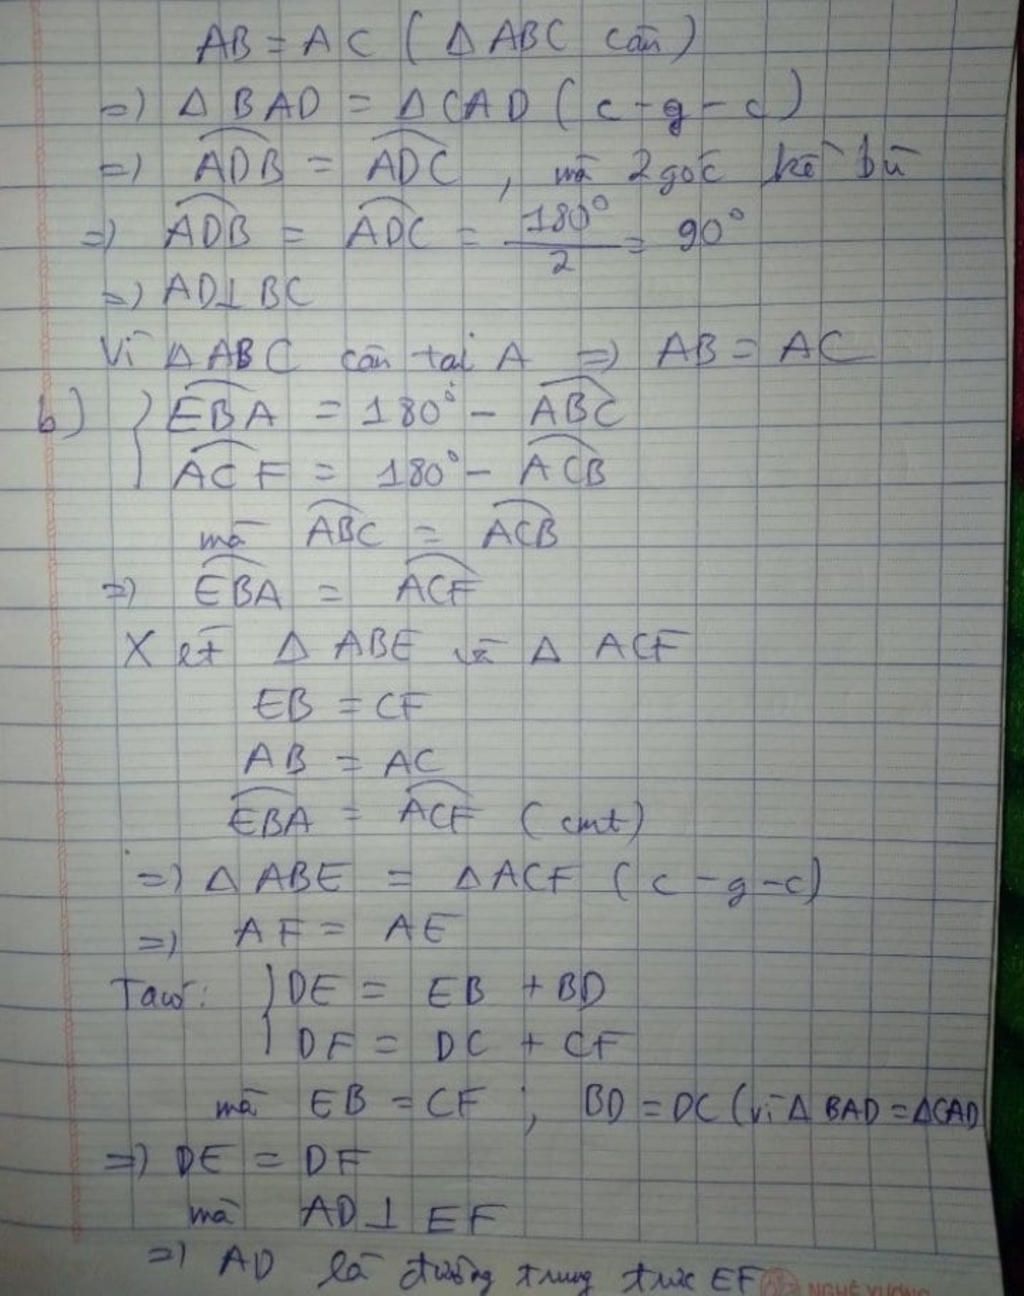 AB = AC ( Δ ABC cân )
=) Δ BAD = Δ CAD ( c - g - c )
=) ADB = ADC , mà 2 góc kề bù
=) ADB = ADC = 180°/2 = 90°
=) AD⊥BC
Vì Δ ABC cân tại A =) AB = AC
b) } EBA = 180° - ABC
ACF = 180° - ACB
mà ABC = ACB
=) EBA = ACF
Xét Δ ABE và Δ ACF
EB = CF
AB = AC
EBA = ACF ( cmt )
=) Δ ABE = Δ ACF ( c - g - c )
=) AF = AE
Ta có: } DE = EB + BD
DF = DC + CF
mà EB = CF ; BD = DC ( vì Δ BAD = Δ CAD
=) DE = DF
mà AD ⊥ EF
=) AD là đường trung trực EF